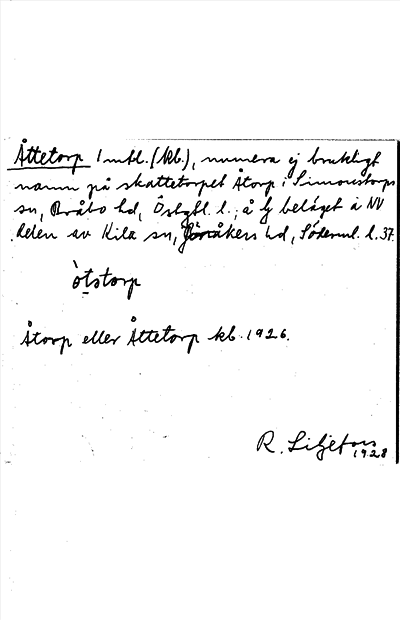 Åttetorp 1 mtl. (kb.), numera ej brukligt
namn på skattetorpet Åtorp i Simonstorps
sn, Bråbo hd, Östgtl. l.; å lj beläget å NV
delen av Kila sn, Jönåkers hd, Söderml. l. 37.
òtstorp
Åtorp eller Åttetorp kb. 1926.
R. Liljefors
1928